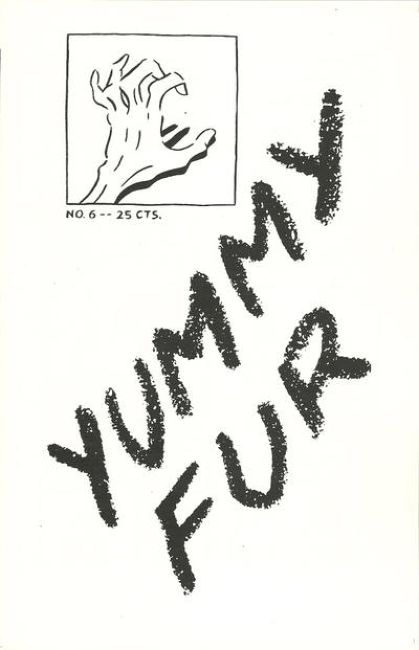 NO. 6 -- 25 CTS.
YUMMY
FUR